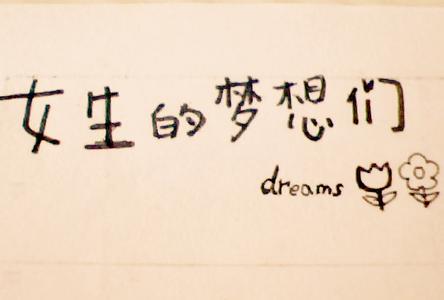 女生的梦想们
dreams